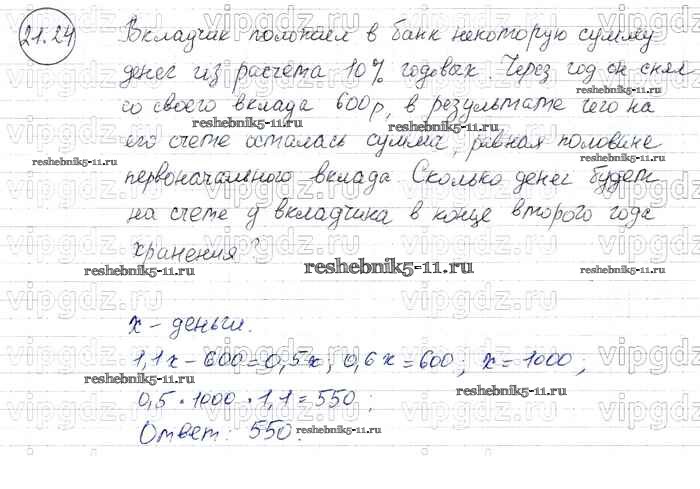 21.24
Вкладчик положил в банк некоторую сумму
денег из расчета 10% годовых. Через год он снял
со своего вклада 600р, в результате чего на
его счете осталась сумма, равная половине
первоначального вклада. Сколько денег будет
на счете у вкладчика в конце второго года
хранения?
x - деньги.
1,1x - 600 = 0,5x; 0,6x = 600; x = 1000;
0,5 · 1000 · 1,1 = 550;
Ответ: 550.
reshebnik5-11.ru
vipgdz.ru